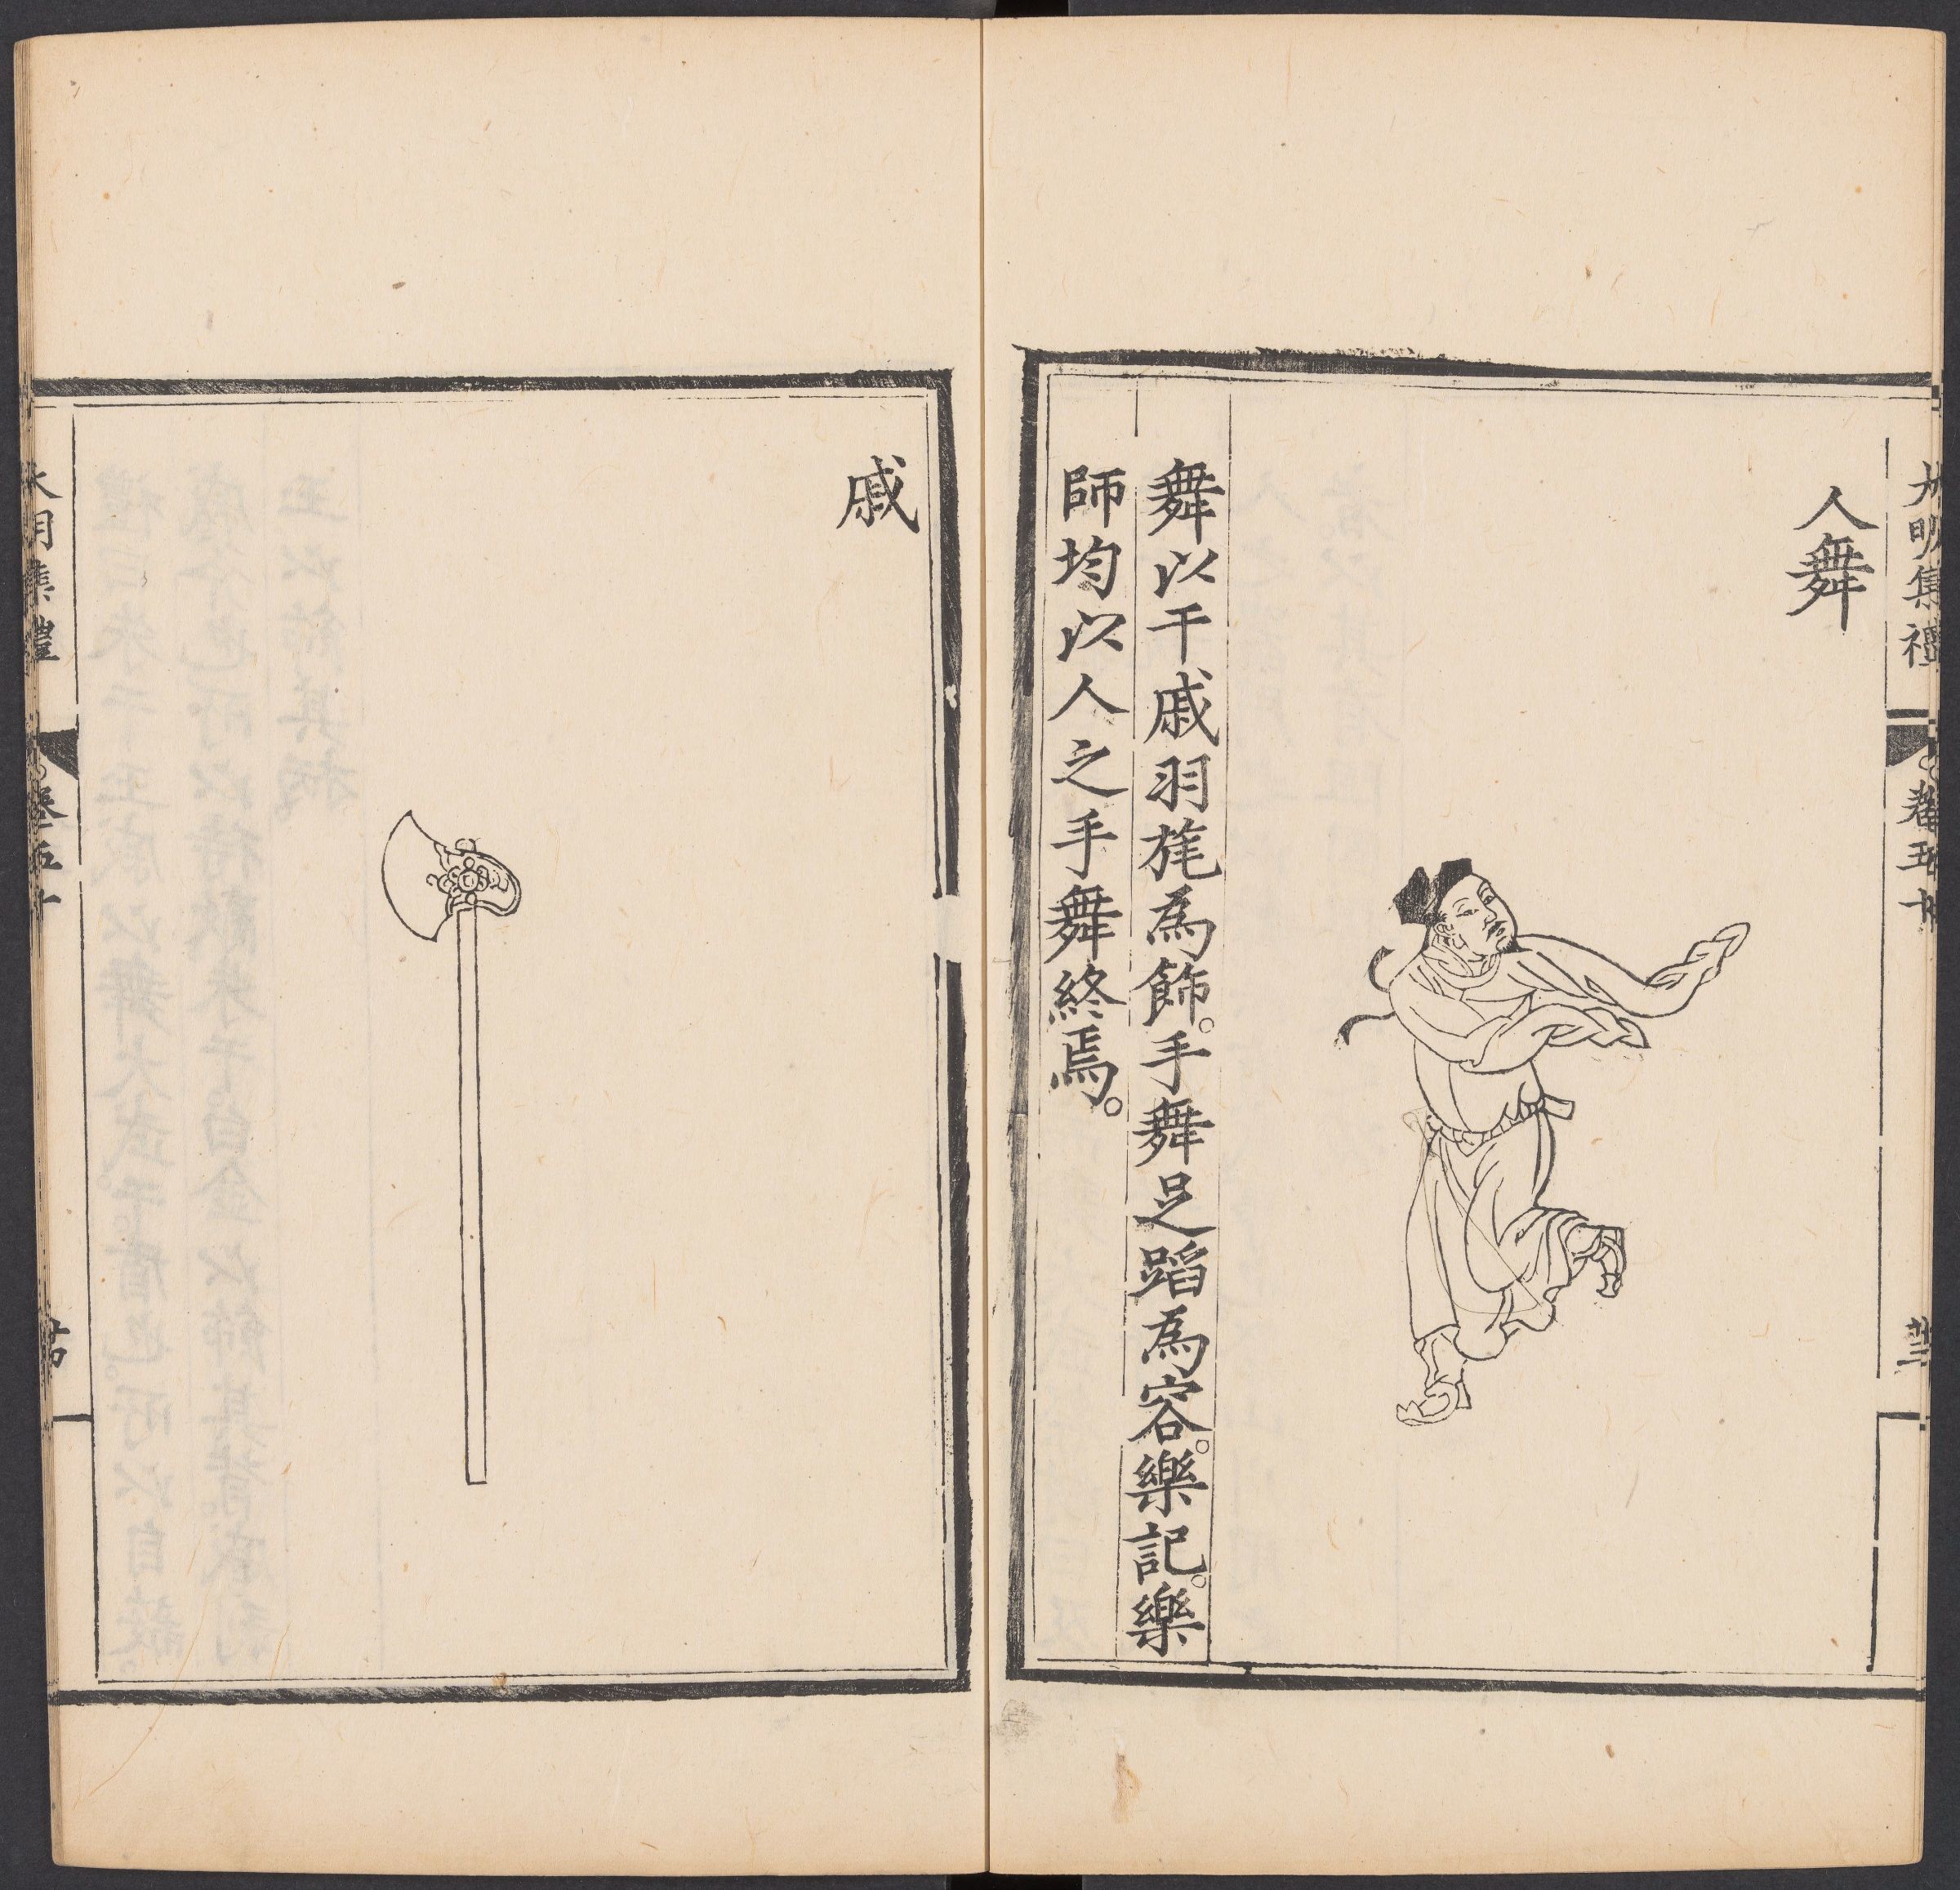 大明集禮
卷五十
人舞
舞以干戚羽旄為飾。手舞足蹈為容。樂記。樂
師均以人之手舞終焉。
戚
大明集禮
卷五十